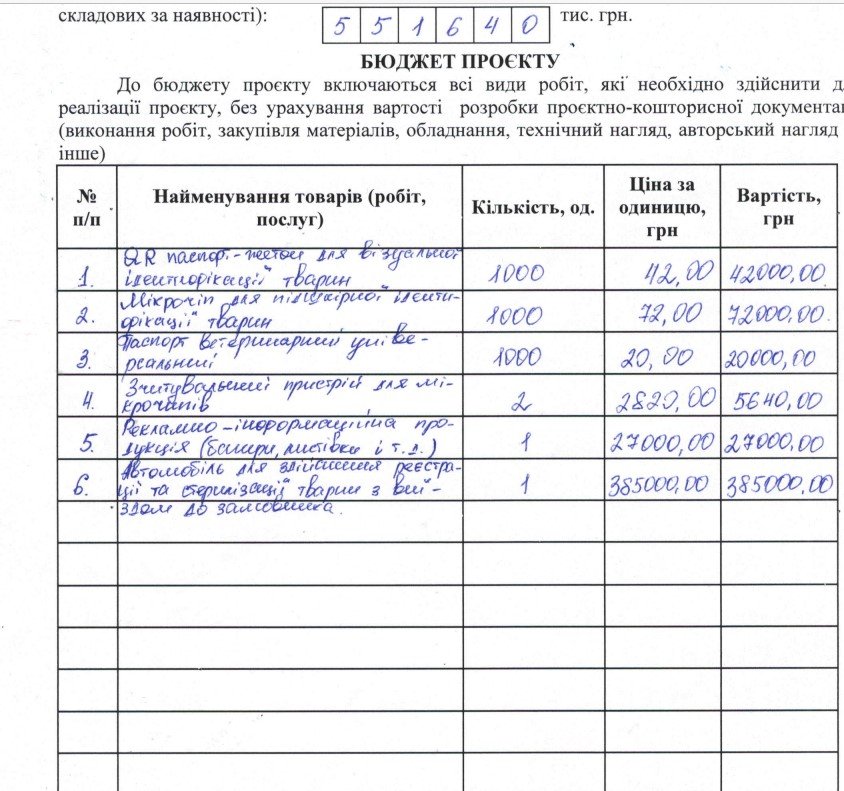 складових за наявності): 5 5 1 6 4 0 тис. грн.
БЮДЖЕТ ПРОЄКТУ
До бюджету проєкту включаються всі види робіт, які необхідно здійснити д
реалізації проєкту, без урахування вартості розробки проєктно-кошторисної документа
(виконання робіт, закупівля матеріалів, обладнання, технічний нагляд, авторський нагляд
інше)
№ п/п Найменування товарів (робіт, послуг) Кількість, од. Ціна за одиницю, грн Вартість, грн
QR паспорт-жетон для візуальної
1. ідентифікації тварин 1000 42,00 42000,00
Мікрочіп для підшкірної іденти-
2. фікації тварин 1000 72,00 72000,00
Паспорт ветеринарний уніве-
3. рсальний 1000 20,00 20000,00
Зчитувальний пристрій для мі-
4. крочипів 2 2820,00 5640,00
Рекламно-інформаційна про-
5. дукція (банери, листівки і т.д.) 1 27000,00 27000,00
Автомобіль для здійснення реєстра-
6. ції та стерилізації тварин з виї- 1 385000,00 385000,00
здом до замовника.